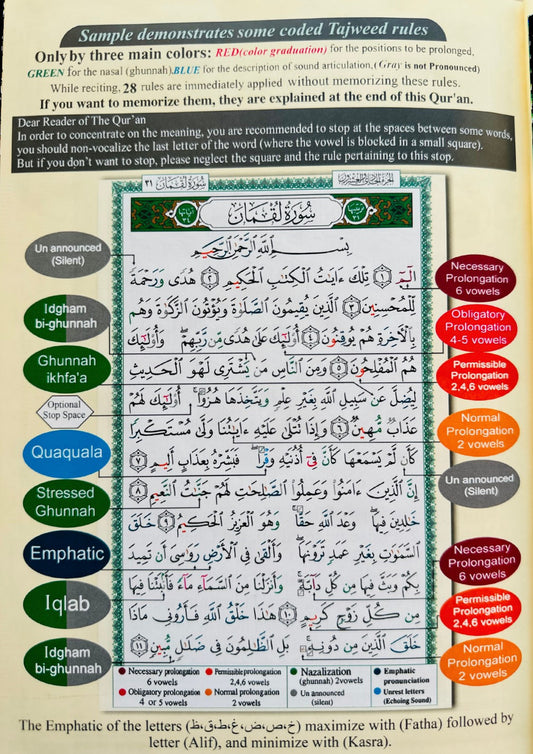 Sample demonstrates some coded Tajweed rules
Only by three main colors: RED(color graduation) for the positions to be prolonged,
GREEN for the nasal (ghunnah),BLUE for the description of sound articulation,(Gray is not Pronounced)
While reciting, 28 rules are immediately applied without memorizing these rules.
If you want to memorize them, they are explained at the end of this Qur'an.
Dear Reader of The Qur'an
In order to concentrate on the meaning, you are recommended to stop at the spaces between some words,
you should non-vocalize the last letter of the word (where the vowel is blocked in a small square).
But if you don't want to stop, please neglect the square and the rule pertaining to this stop.
سُورَةُ لُقْمَان ٣١
سُورَةُ لُقْمَان
بِسْمِ اللَّهِ الرَّحْمَٰنِ الرَّحِيمِ
الٓمٓ ١ تِلْكَ ءَايَٰتُ الْكِتَٰبِ الْحَكِيمِ ٢ هُدًى وَرَحْمَةً
لِّلْمُحْسِنِينَ ٣ الَّذِينَ يُقِيمُونَ الصَّلَوٰةَ وَيُؤْتُونَ الزَّكَوٰةَ وَهُم
بِالْآخِرَةِ هُمْ يُوقِنُونَ ٤ أُولَٰٓئِكَ عَلَىٰ هُدًى مِّن رَّبِّهِمْ وَأُولَٰٓئِكَ
هُمُ الْمُفْلِحُونَ ٥ وَمِنَ النَّاسِ مَن يَشْتَرِى لَهْوَ الْحَدِيثِ
لِيُضِلَّ عَن سَبِيلِ اللَّهِ بِغَيْرِ عِلْمٍ وَيَتَّخِذَهَا هُزُوًا أُولَٰٓئِكَ لَهُمْ
عَذَابٌ مُّهِينٌ ٦ وَإِذَا تُتْلَىٰ عَلَيْهِ ءَايَٰتُنَا وَلَّىٰ مُسْتَكْبِرًا
كَأَن لَّمْ يَسْمَعْهَا كَأَنَّ فِىٓ أُذُنَيْهِ وَقْرًا فَبَشِّرْهُ بِعَذَابٍ أَلِيمٍ ٧
إِنَّ الَّذِينَ ءَامَنُوا وَعَمِلُوا الصَّٰلِحَٰتِ لَهُمْ جَنَّٰتُ النَّعِيمِ ٨
خَٰلِدِينَ فِيهَا وَعْدَ اللَّهِ حَقًّا وَهُوَ الْعَزِيزُ الْحَكِيمُ ٩ خَلَقَ
السَّمَٰوَٰتِ بِغَيْرِ عَمَدٍ تَرَوْنَهَا وَأَلْقَىٰ فِى الْأَرْضِ رَوَٰسِىَ أَن تَمِيدَ
بِكُمْ وَبَثَّ فِيهَا مِن كُلِّ دَآبَّةٍ وَأَنزَلْنَا مِنَ السَّمَآءِ مَآءً فَأَنۢبَتْنَا فِيهَا
مِن كُلِّ زَوْجٍ كَرِيمٍ ١٠ هَٰذَا خَلْقُ اللَّهِ فَأَرُونِى مَاذَا
خَلَقَ الَّذِينَ مِن دُونِهِ بَلِ الظَّٰلِمُونَ فِى ضَلَٰلٍ مُّبِينٍ ١١
Un announced
(Silent)
Idgham
bi-ghunnah
Ghunnah
ikhfa'a
Optional
Stop Space
Quaquala
Stressed
Ghunnah
Emphatic
Iqlab
Idgham
bi-ghunnah
Necessary
Prolongation
6 vowels
Obligatory
Prolongation
4-5 vowels
Permissible
Prolongation
2,4,6 vowels
Normal
Prolongation
2 vowels
Un announced
(Silent)
Necessary
Prolongation
6 vowels
Permissible
Prolongation
2,4,6 vowels
Normal
Prolongation
2 vowels
Necessary prolongation
6 vowels
Permissible prolongation
2,4,6 vowels
Nazalization
(ghunnah) 2vowels
Emphatic
pronunciation
Obligatory prolongation
4 or 5 vowels
Normal prolongation
2 vowels
Un announced
(silent)
Unrest letters
(Echoing Sound)
The Emphatic of the letters (خ،ص،ض،غ،ط،ق،ظ) maximize with (Fatha) followed by
letter (Alif), and minimize with (Kasra).